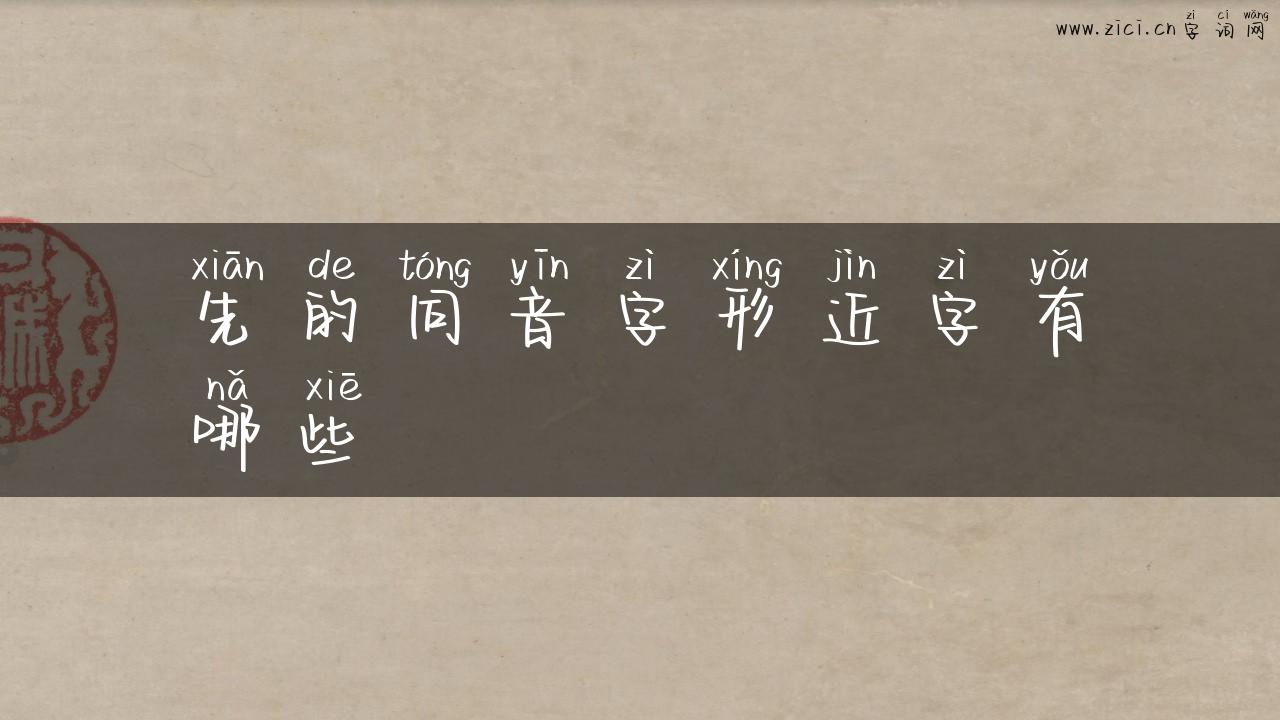 zì cí wǎng
www.zici.cn 字词网
xiān de tóng yīn zì xíng jìn zì yǒu
先的同音字形近字有
nǎ xiē
哪些